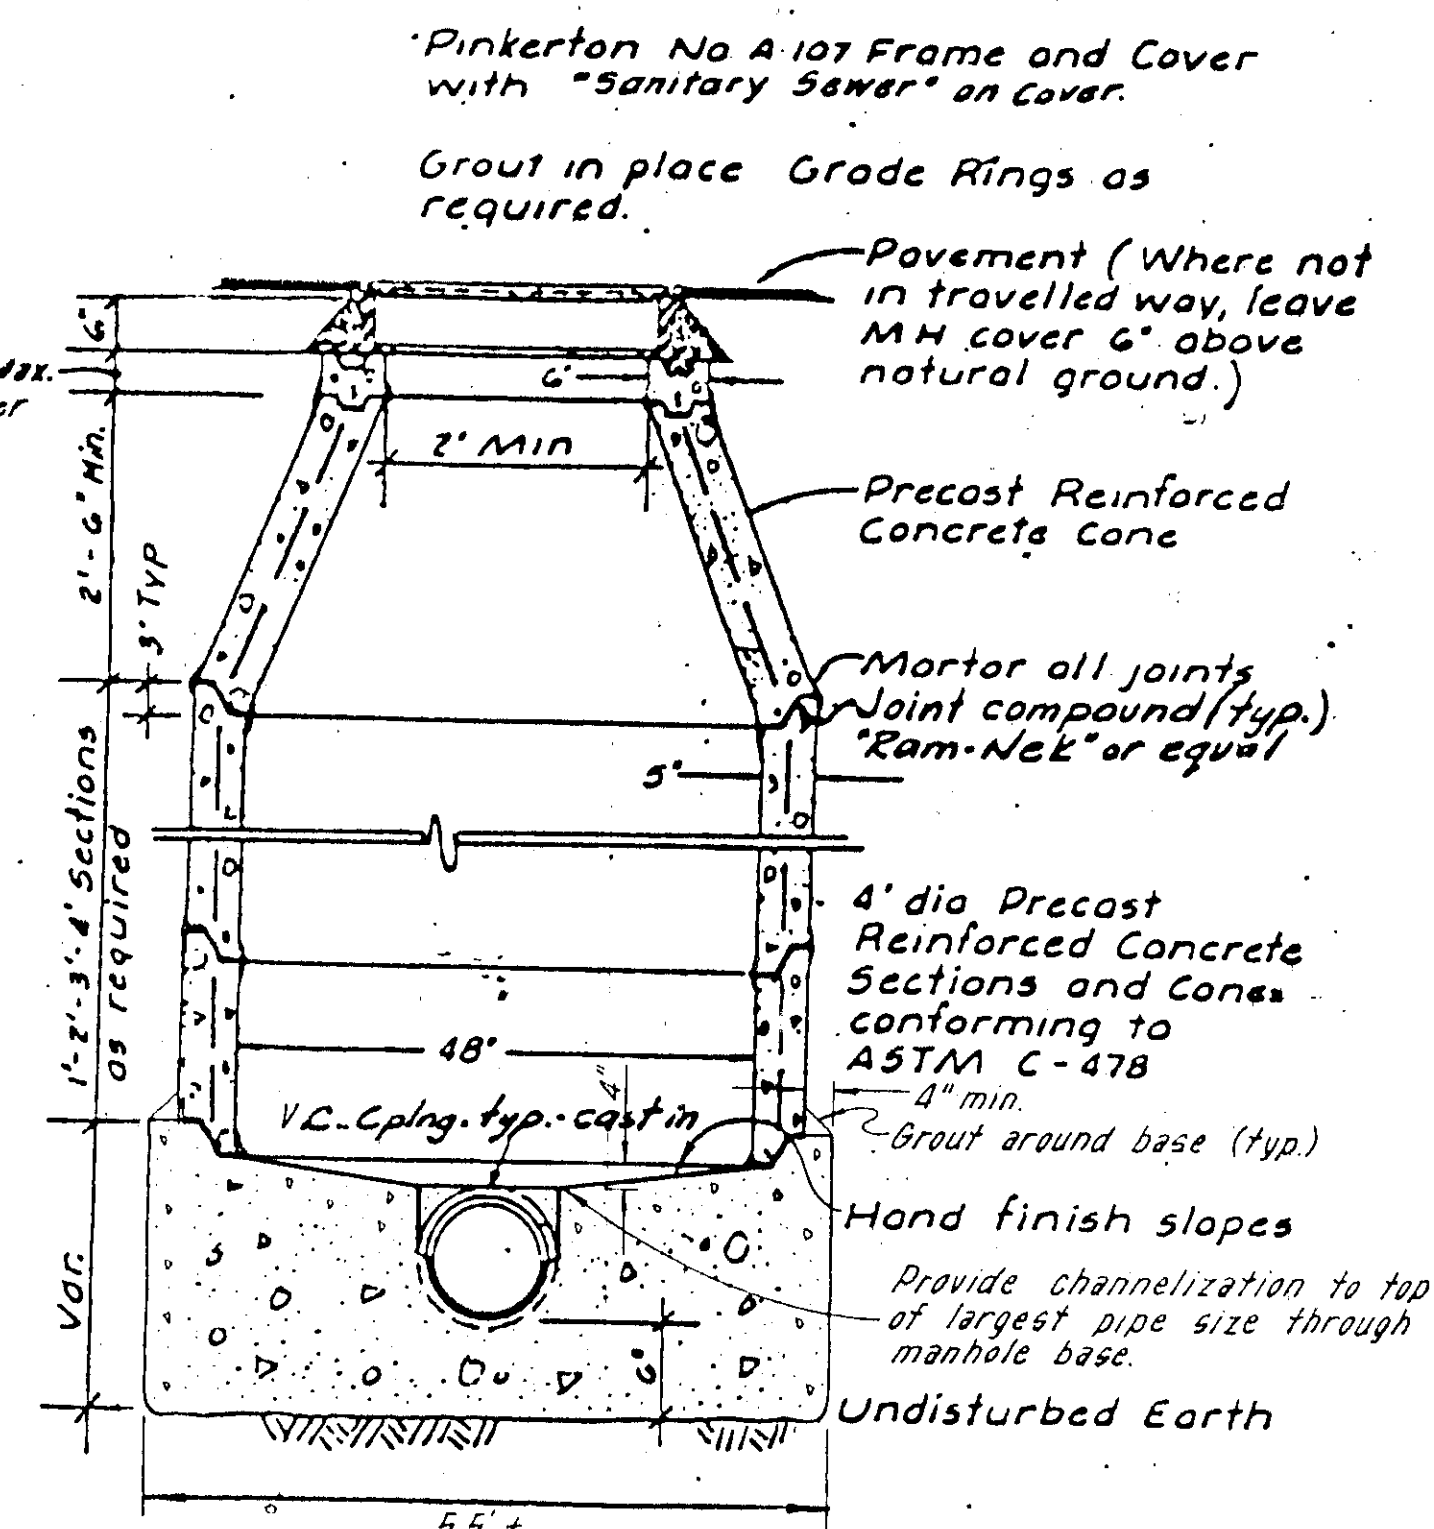 Pinkerton No A-107 Frame and Cover
with "Sanitary Sewer" on Cover.
Grout in place Grade Rings as
required.
Pavement (Where not
in travelled way, leave
MH cover 6" above
natural ground.)
6"
Max.
6"
2' Min
2'-6" Min.
Precast Reinforced
Concrete Cone
3" TYP
Mortar all joints
Joint compound (typ.)
"Ram-Nek" or equal
5"
1'-2'-3'-4' Sections
as required
4' dia Precast
Reinforced Concrete
Sections and Cones
conforming to
ASTM C-478
48"
4"
4" min.
V.C. Cplng. typ. - cast in
Grout around base (typ.)
Hand finish slopes
Provide channelization to top
of largest pipe size through
manhole base.
Var.
6"
Undisturbed Earth